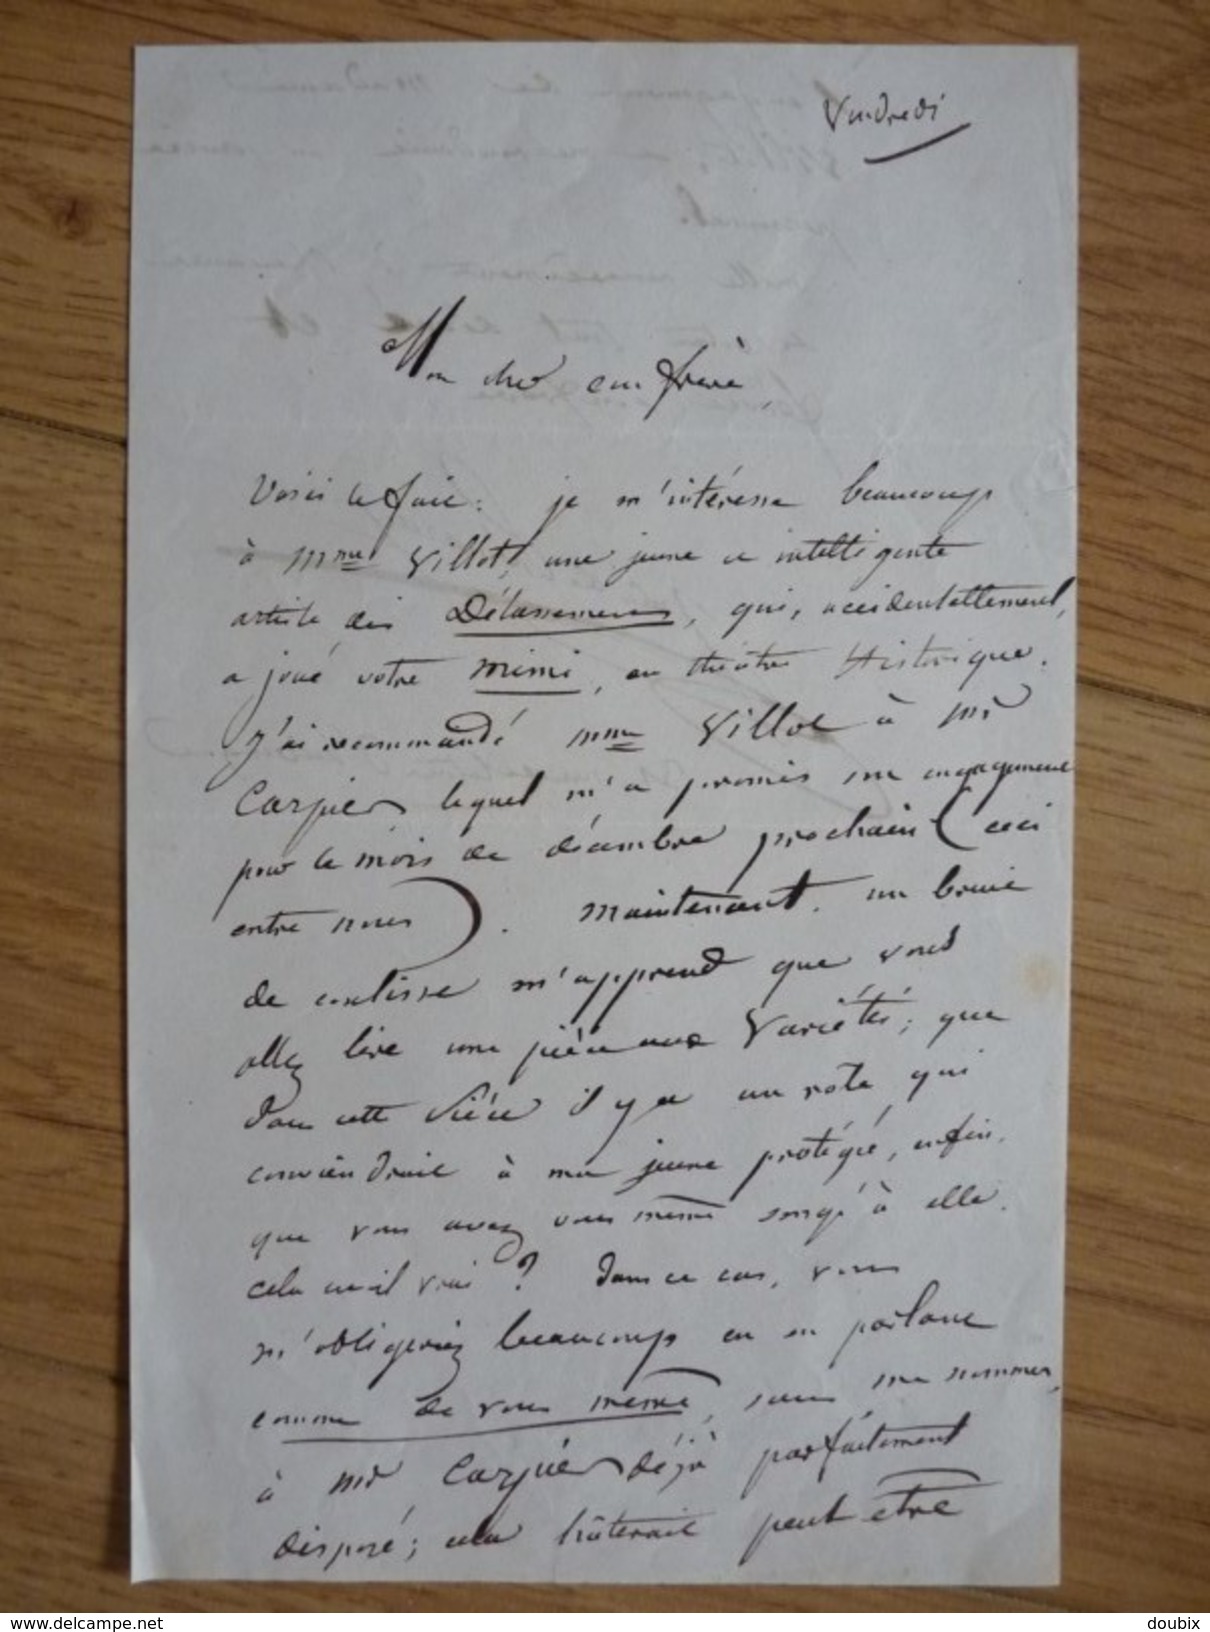 Vendredi
Mon cher confrère,
Voici le fait : je m'intéresse beaucoup
à Mme Villot, une jeune et intelligente
artiste des Délassements, qui, accidentellement,
a joué votre Mimi, au théâtre Historique.
J'ai recommandé Mme Villot à Mr
Carpier, lequel m'a promis un engagement
pour le mois de décembre prochain (ceci
entre nous). Maintenant, un bruit
de coulisse m'apprend que vous
allez lire une pièce aux Variétés ; que
dans cette pièce il y a un rôle qui
conviendrait à ma jeune protégée, enfin,
que vous avez vous même songé à elle.
cela est-il vrai ? Dans ce cas, vous
m'obligeriez beaucoup en en parlant
comme de vous même, sans me nommer,
à Mr Carpier déjà parfaitement
disposé ; cela hâterait peut être
www.delcampe.net
doubix